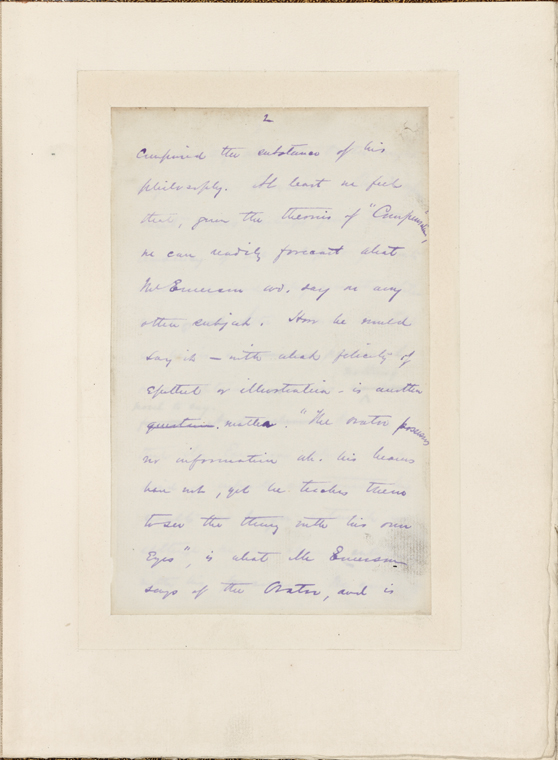 2
comprised the substance of his
philosophy. At least we feel
that, given the theories of "Compensation",
we can readily forecast what
Mr Emerson wd. say on any
other subject. How he would
say it – with what felicity of
epithet or illustration – is another
question. matter. "The orator possesses
no information wh. his hearers
have not, yet he teaches them
to see the thing with his own
Eyes", is what Mr Emerson
says of the Orator, and is